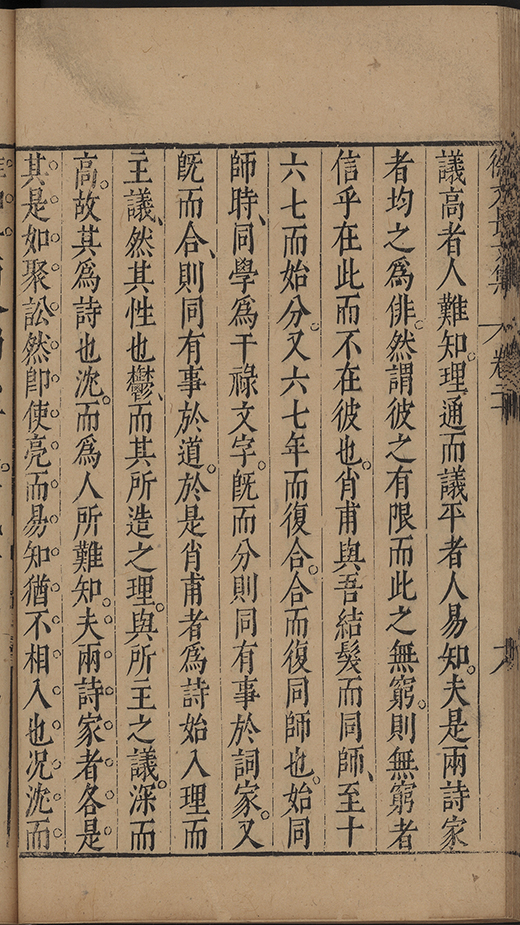 徐文長文集 卷二十
議高者人難知理通而議平者人易知。夫是兩詩家
者均之爲俳。然謂彼之有限而此之無窮。則無窮者
信乎在此而不在彼也。肖甫與吾結髮而同師、至十
六七而始分。又六七年而復合。合而復同師也。始同
師時、同學爲干祿文字。旣而分則同有事於詞家。又
旣而合、則同有事於道。於是肖甫者爲詩始入理而
主議、然其性也鬱、而其所造之理。與所主之議。深而
高。故其爲詩也沈。而爲人所難知。夫兩詩家者各是
其是如聚訟然卽使亮而易知猶不相入也况沈而